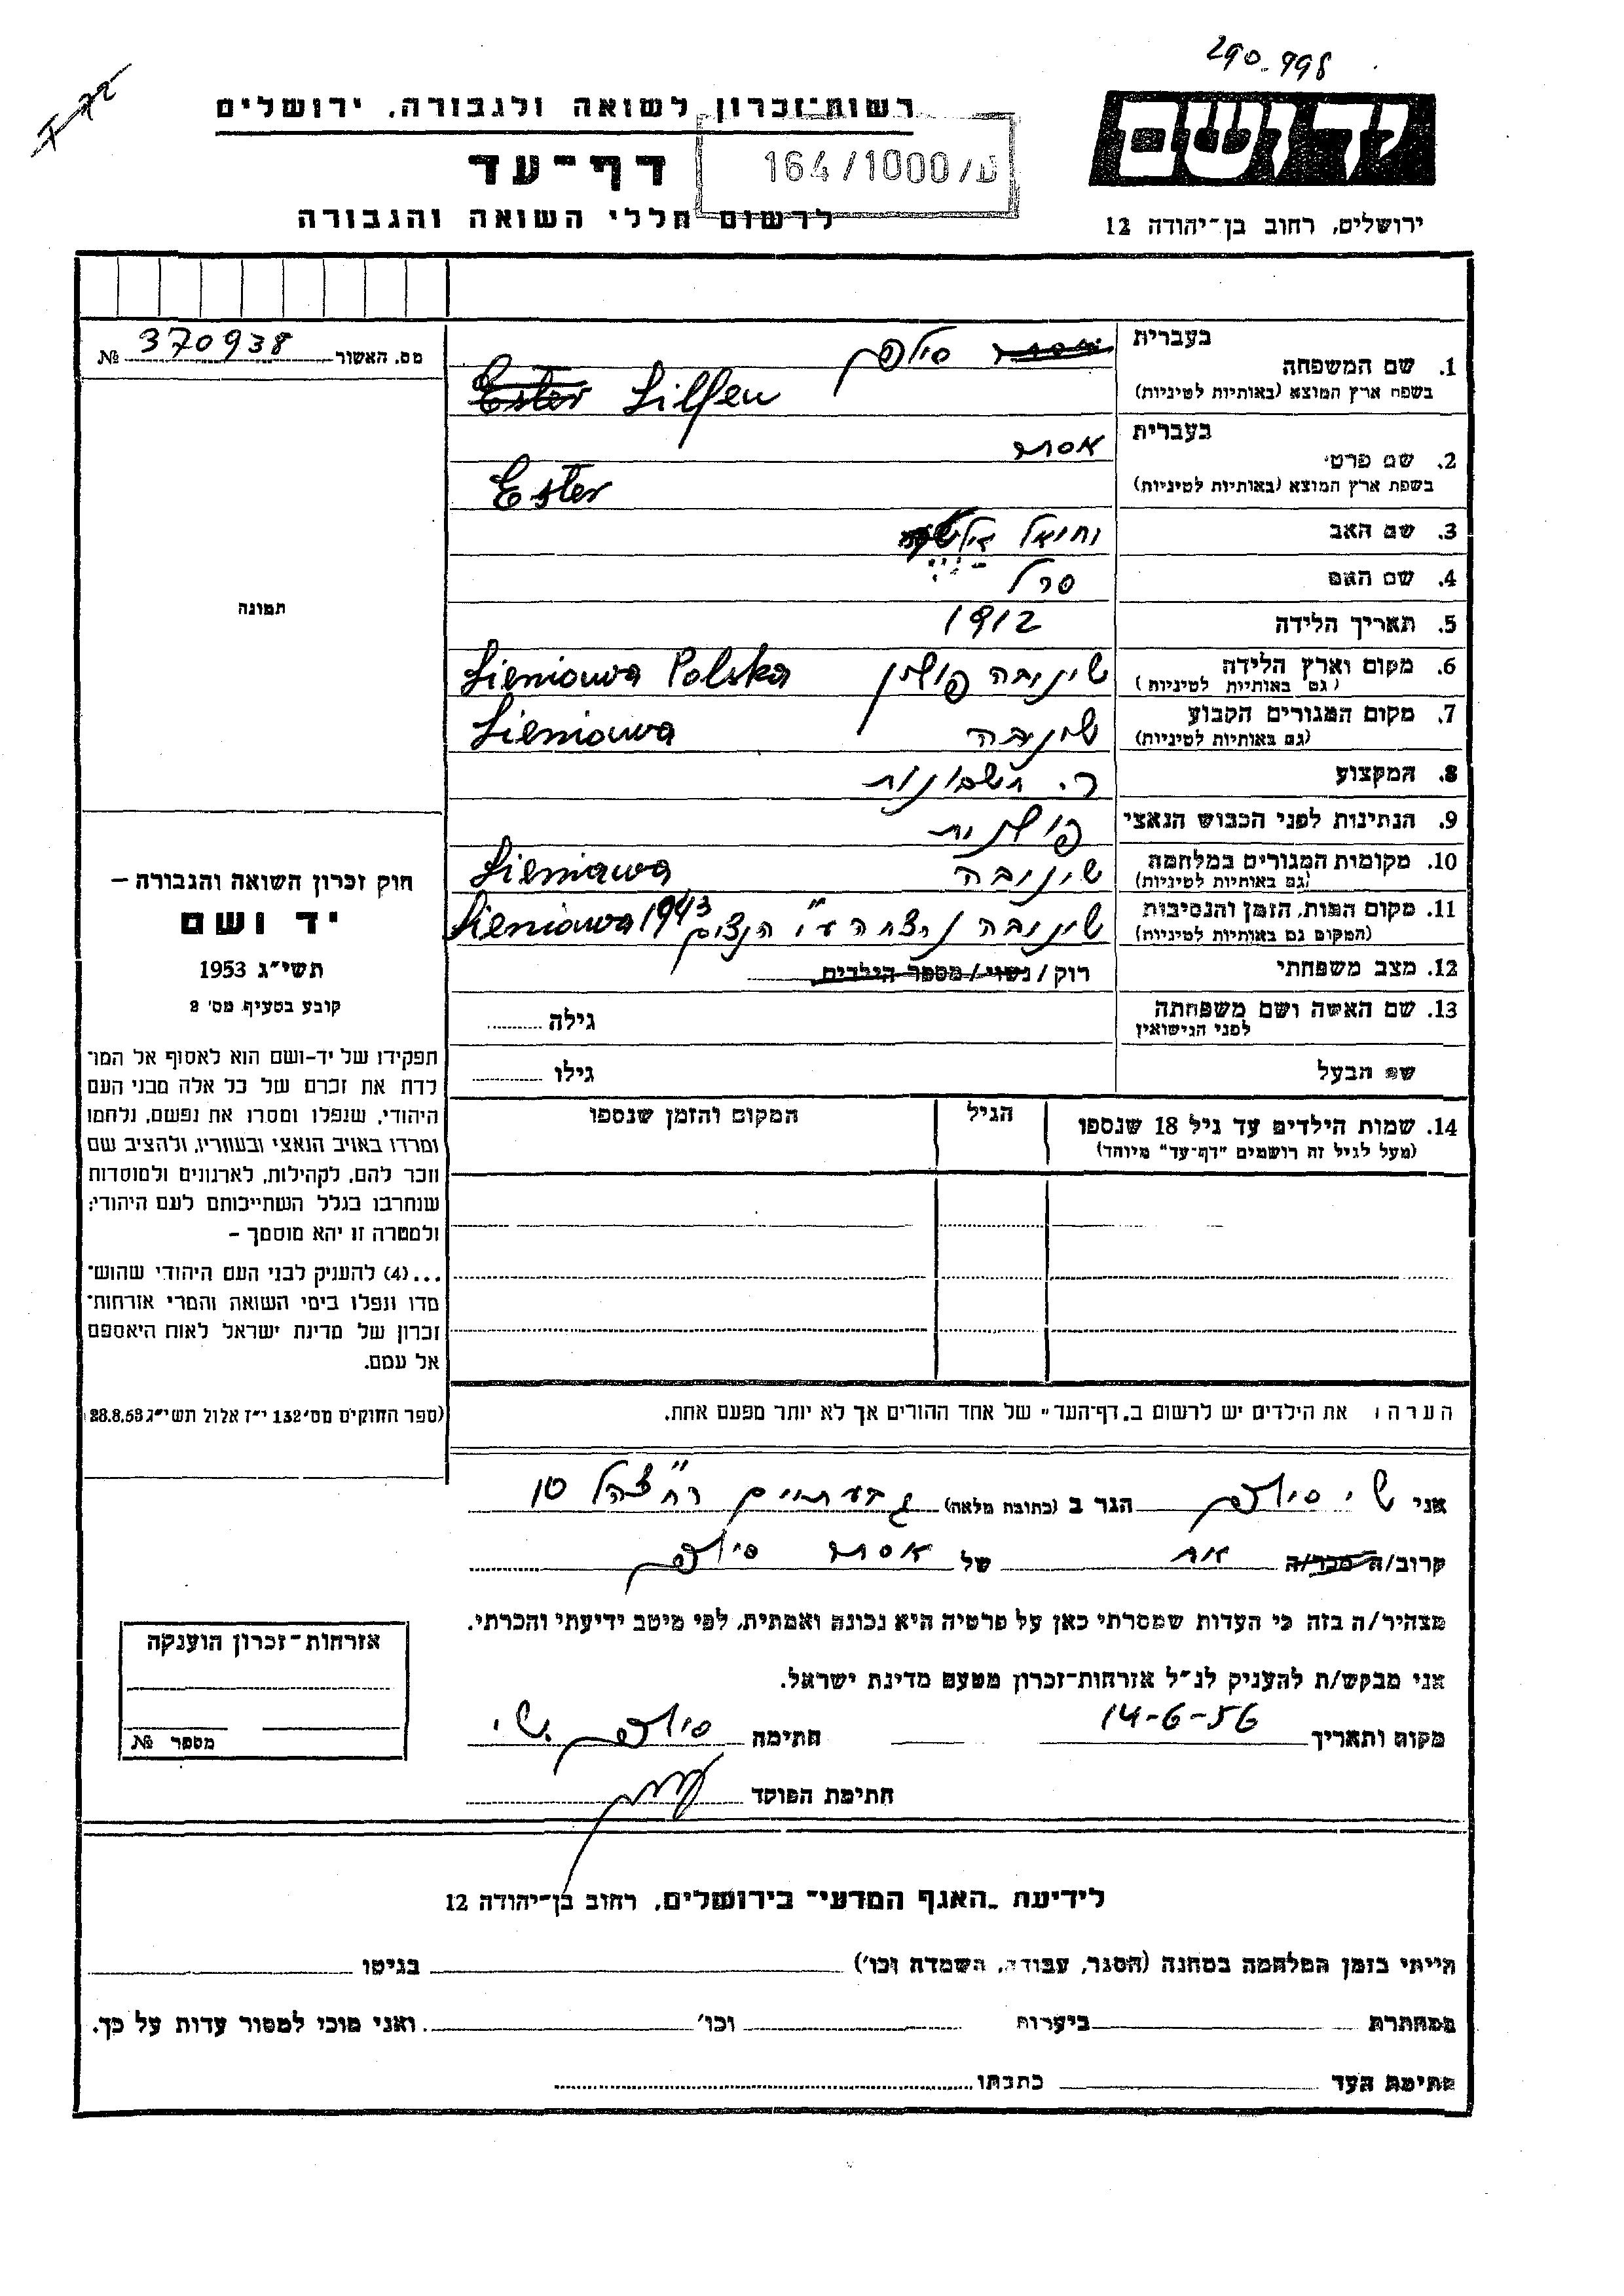 290.998
רשות-זכרון לשואה ולגבורה, ירושלים
דף-עד
164/1000/ע
לרשום חללי השואה והגבורה
יד ושם
ירושלים, רחוב בן-יהודה 12
מס. האשור 370938 №
תמונה
בעברית
1. שם המשפחה סילפן
בשפת ארץ המוצא (באותיות לטיניות) Silfen
בעברית
2. שם פרטי אסתר
בשפת ארץ המוצא (באותיות לטיניות) Ester
3. שם האב
4. שם האם פרל
5. תאריך הלידה 1912
6. מקום וארץ הלידה שינובה פולין Sieniowa Polska
(גם באותיות לטיניות)
7. מקום המגורים הקבוע שינובה Sieniowa
(גם באותיות לטיניות)
8. המקצוע ר. חשבונות
9. הנתינות לפני הכבוש הנאצי פולנית
10. מקומות המגורים במלחמה שינובה Sieniawa
(גם באותיות לטיניות)
11. מקום המות, הזמן והנסיבות שינובה נרצחה ע"י הנצים Sieniowa 1943
(המקום גם באותיות לטיניות)
12. מצב משפחתי רוק/נשוי/מספר הילדים
13. שם האשה ושם משפחתה גילה
לפני הנישואין
שם הבעל גילו
14. שמות הילדים עד גיל 18 שנספו הגיל המקום והזמן שנספו
(מעל לגיל זה רושמים "דף-עד" מיוחד)
חוק זכרון השואה והגבורה –
יד ושם
תשי"ג 1953
קובע בסעיף מס' 2
תפקידו של יד-ושם הוא לאסוף אל המו־
לדת את זכרם של כל אלה מבני העם
היהודי, שנפלו ומסרו את נפשם, נלחמו
ומרדו באויב הנאצי ובעוזריו, ולהציב שם
וזכר להם, לקהילות, לארגונים ולמוסדות
שנחרבו בגלל השתייכותם לעם היהודי;
ולמטרה זו יהא מוסמך –
...(4) להעניק לבני העם היהודי שהוש־
מדו ונפלו בימי השואה והמרי אזרחות־
זכרון של מדינת ישראל לאות היאספם
אל עמם.
(ספר החוקים מס' 132 י"ז אלול תשי"ג 28.8.53)
הערה: את הילדים יש לרשום ב„דף-העד" של אחד ההורים אך לא יותר מפעם אחת.
אני ש. סילפן הגר ב (כתובת מלאה) גבעתיים רח' צה"ל 10
קרוב/ה מכר/ה אח של אסתר סילפן
מצהיר/ה בזה כי העדות שמסרתי כאן על פרטיה היא נכונה ואמתית, לפי מיטב ידיעתי והכרתי.
אני מבקש/ת להעניק לנ"ל אזרחות-זכרון מטעם מדינת ישראל.
מקום ותאריך 14-6-56 חתימה סילפן ש.
חתימת הפוקד
אזרחות-זכרון הוענקה
מספר №
לידיעת „האגף המדעי" בירושלים, רחוב בן-יהודה 12
הייתי בזמן המלחמה במחנה (הסגר, עבודה, השמדה וכו') בגיטו
במחתרת ביערות וכו' ואני מוכן למסור עדות על כך.
חתימת העד כתבתו